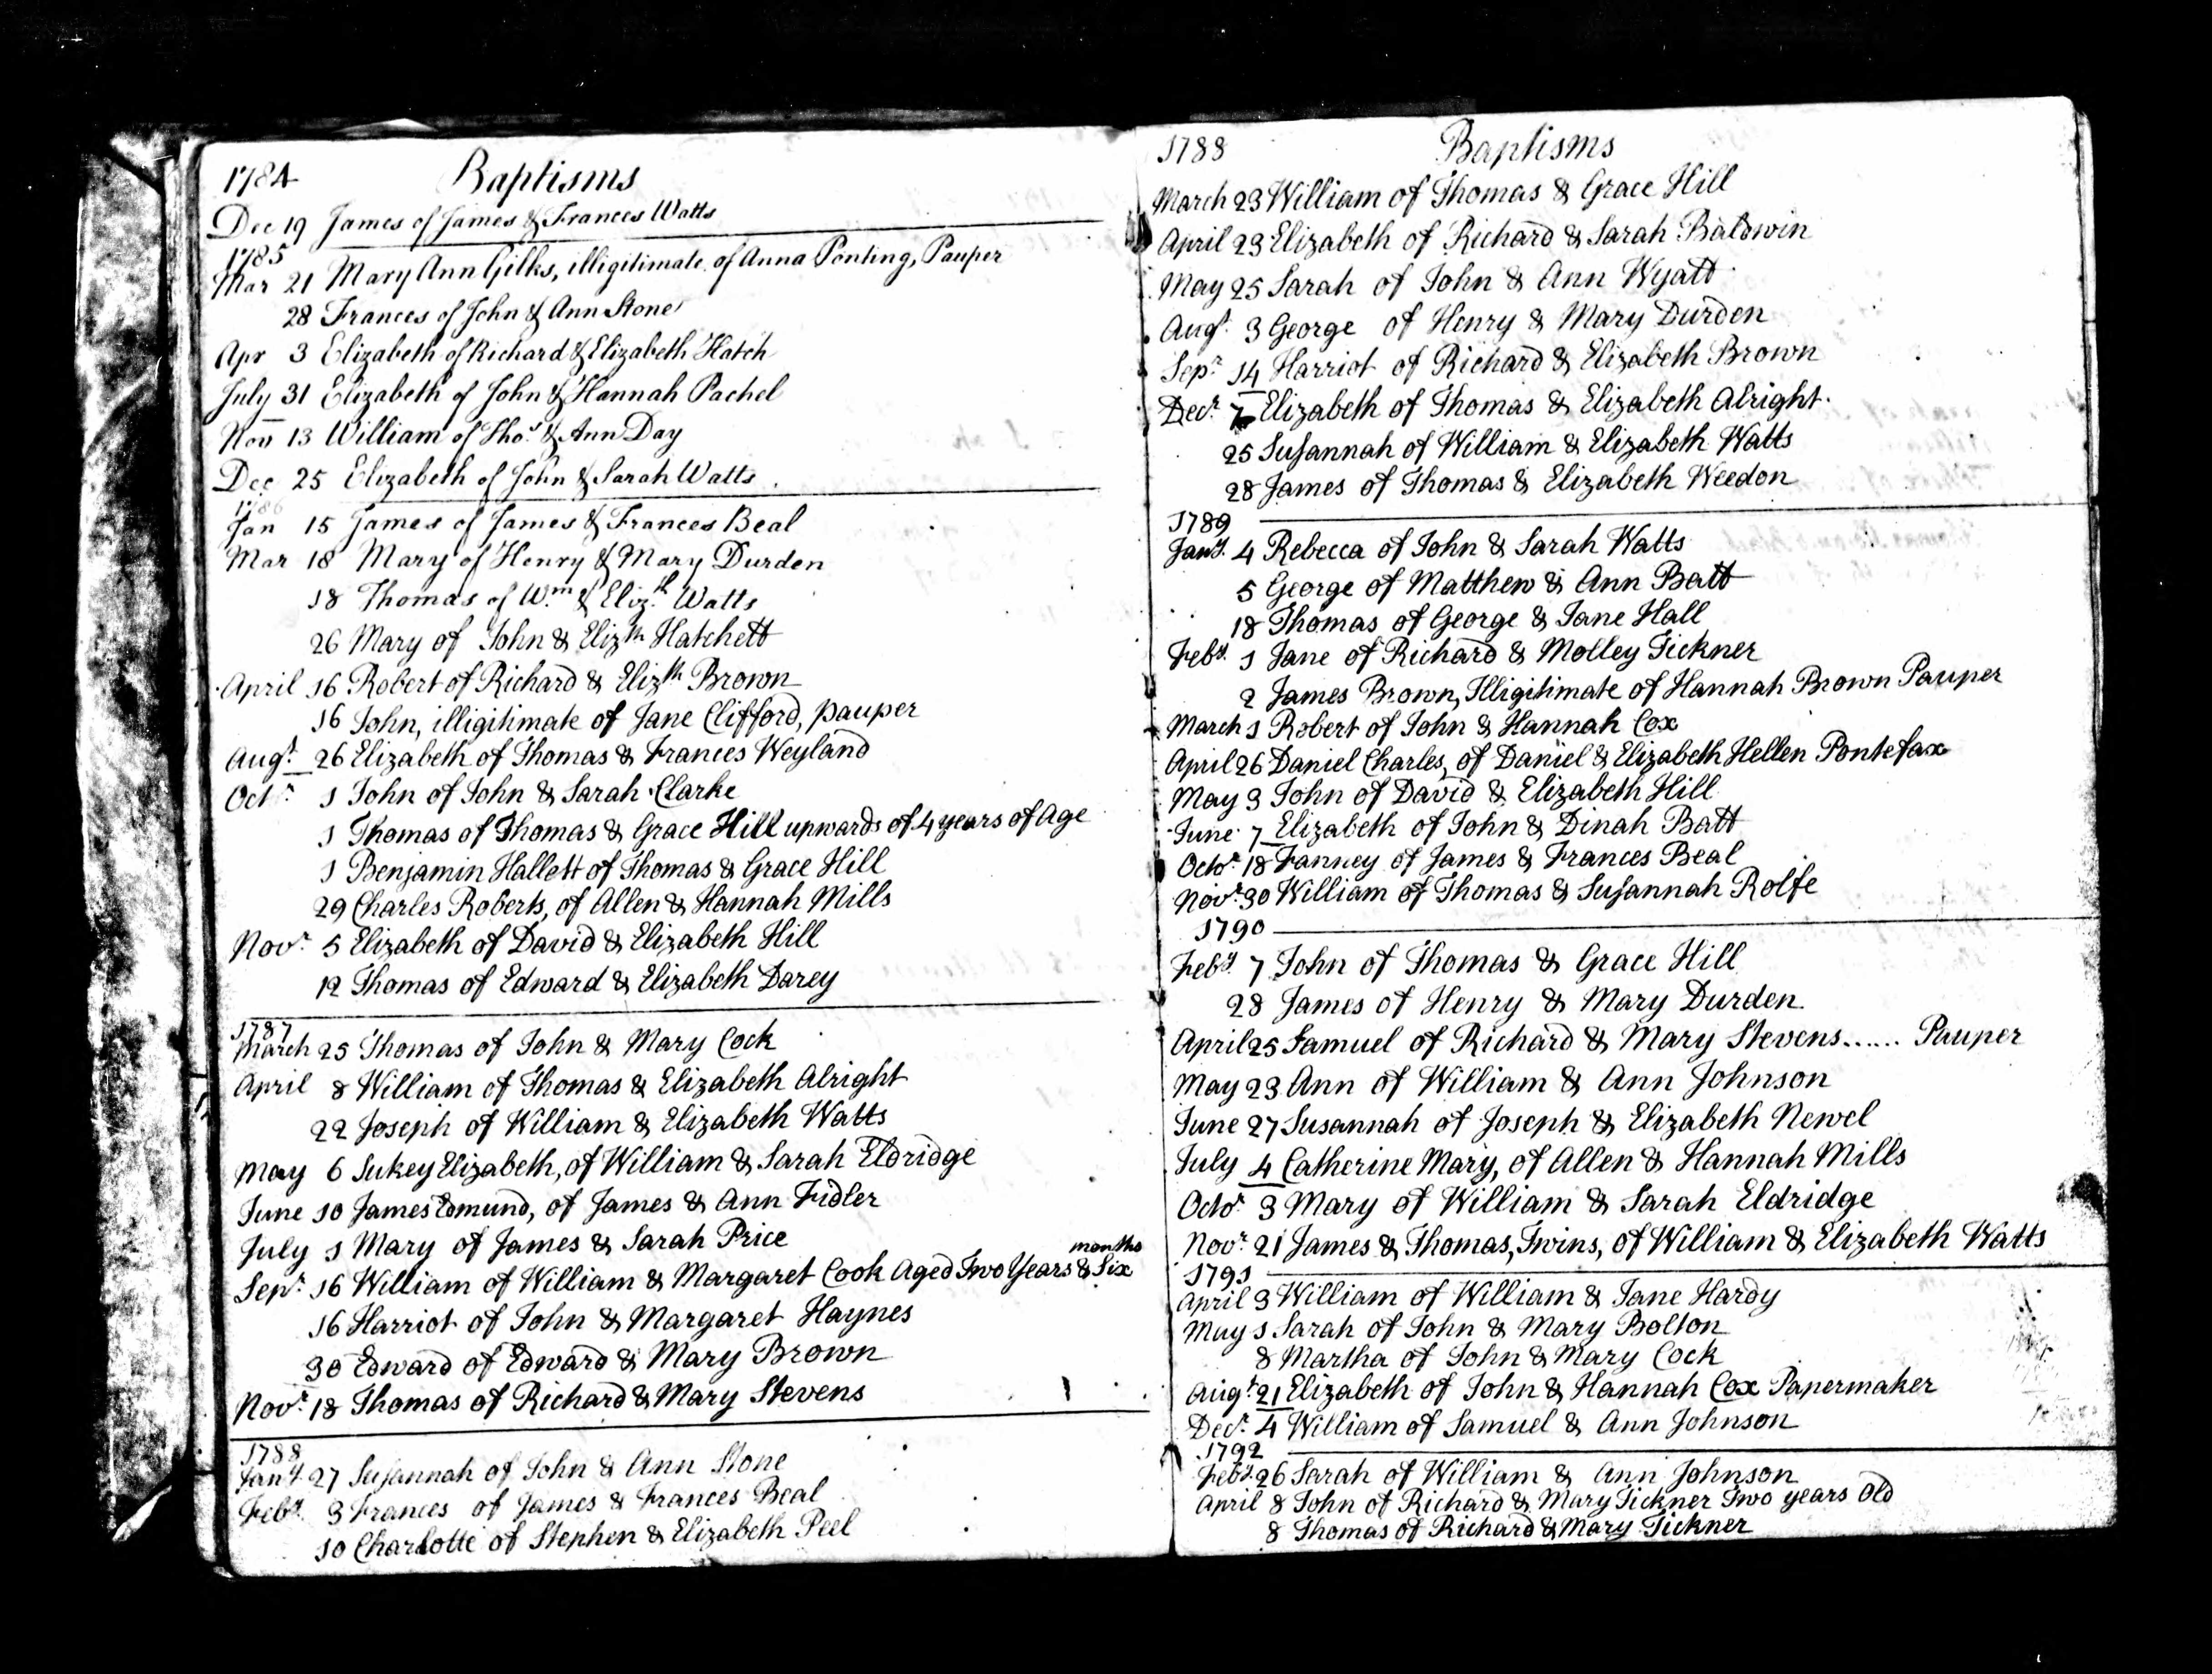 1784 Baptisms
Dec 19 James of James & Frances Watts
1785
Mar 21 Mary Ann Gilks, illigitimate of Anna Ponting, Pauper
28 Frances of John & Ann Stone
Apr 3 Elizabeth of Richard & Elizabeth Hatch
July 31 Elizabeth of John & Hannah Pachel
Nov 13 William of Thos. & Ann Day
Dec 25 Elizabeth of John & Sarah Watts
1786
Jan 15 James of James & Frances Beal
Mar 18 Mary of Henry & Mary Durden
18 Thomas of Wm. & Elizth. Watts
26 Mary of John & Elizth Hatchett
April 16 Robert of Richard & Elizth Brown
16 John, illigitimate of Jane Clifford, pauper
Augt. 26 Elizabeth of Thomas & Frances Weyland
Octr. 1 John of John & Sarah Clarke
1 Thomas of Thomas & Grace Hill upwards of 4 years of Age
1 Benjamin Hallett of Thomas & Grace Hill
29 Charles Roberts, of Allen & Hannah Mills
Novr. 5 Elizabeth of David & Elizabeth Hill
12 Thomas of Edward & Elizabeth Darey
1787
March 25 Thomas of John & Mary Cock
April 8 William of Thomas & Elizabeth Alright
22 Joseph of William & Elizabeth Watts
May 6 Sukey Elizabeth, of William & Sarah Eldridge
June 10 James Edmund, of James & Ann Fidler
July 1 Mary of James & Sarah Price
Sepr. 16 William of William & Margaret Cook Aged Two Years & Six months
16 Harriot of John & Margaret Haynes
30 Edward of Edward & Mary Brown
Novr. 18 Thomas of Richard & Mary Stevens
1788
Jany. 27 Susannah of John & Ann Stone
Feby. 3 Frances of James & Frances Beal
10 Charlotte of Stephen & Elizabeth Peel
1788 Baptisms
March 23 William of Thomas & Grace Hill
April 23 Elizabeth of Richard & Sarah Baldwin
May 25 Sarah of John & Ann Wyatt
Augt. 3 George of Henry & Mary Durden
Sepr. 14 Harriot of Richard & Elizabeth Brown
Decr. 7 Elizabeth of Thomas & Elizabeth Alright.
25 Susannah of William & Elizabeth Watts
28 James of Thomas & Elizabeth Weedon
1789
Jany. 4 Rebecca of John & Sarah Watts
5 George of Matthew & Ann Batt
18 Thomas of George & Jane Hall
Feby. 1 Jane of Richard & Molley Tickner
2 James Brown, Illigitimate of Hannah Brown Pauper
March 1 Robert of John & Hannah Cox
April 26 Daniel Charles, of Daniel & Elizabeth Hellen Pontefax
May 3 John of David & Elizabeth Hill
June 7 Elizabeth of John & Dinah Batt
Octor. 18 Fanney of James & Frances Beal
Novr. 30 William of Thomas & Susannah Rolfe
1790
Feby. 7 John of Thomas & Grace Hill
28 James of Henry & Mary Durden
April 25 Samuel of Richard & Mary Stevens...... Pauper
May 23 Ann of William & Ann Johnson
June 27 Susannah of Joseph & Elizabeth Newel
July 4 Catherine Mary, of Allen & Hannah Mills
Octor. 3 Mary of William & Sarah Eldridge
Novr. 21 James & Thomas, Twins, of William & Elizabeth Watts
1791
April 3 William of William & Jane Hardy
May 1 Sarah of John & Mary Bolton
8 Martha of John & Mary Cock
Augt. 21 Elizabeth of John & Hannah Cox Papermaker
Decr. 4 William of Samuel & Ann Johnson
1792
Feby. 26 Sarah of William & Ann Johnson
April 8 John of Richard & Mary Tickner Two years Old
8 Thomas of Richard & Mary Tickner